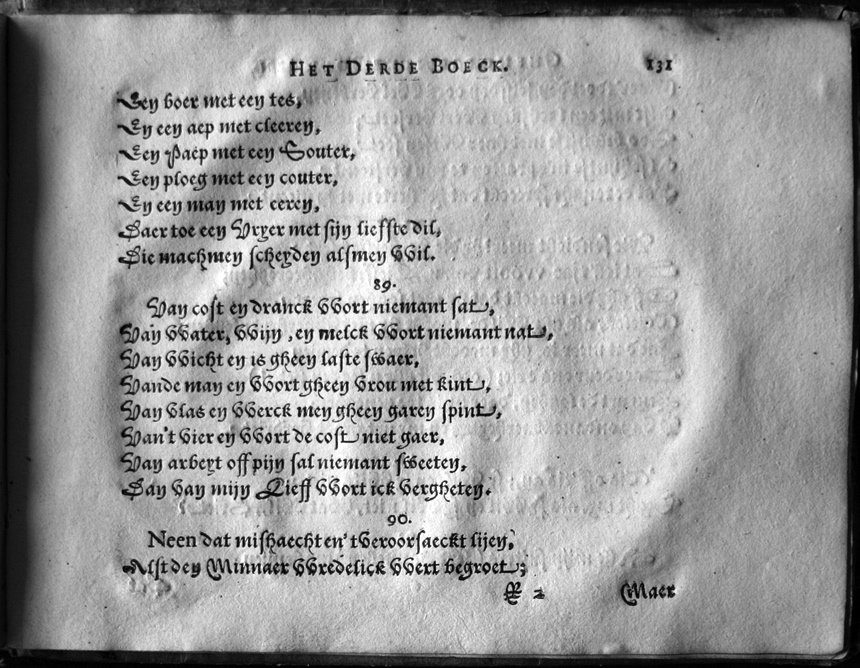 HET DERDE BOECK. 131
Een boer met een tes,
En een aep met cleeren,
Een Paep met een Souter,
Een ploeg met een couter,
En een man met eeren,
Daer toe een Vryer met sijn liefste dil,
Die machmen scheyden alsmen Wil.
89.
Van cost en dranck Wort niemant sat,
Van Water, Wijn, en melck Wort niemant nat,
Van Wicht en is gheen laste swaer,
Vande man en Wort gheen Vrou met kint,
Van Vlas en Werck men gheen garen spint,
Van't Vier en Wort de cost niet gaer,
Van arbeyt off pijn sal niemant sweeten,
Dan Van mijn Lieff Wort ick Vergheten.
90.
Neen dat mishaecht en' tVeroorsaeckt lijen,
Alst den Minnaer Wredelick Wert begroet;
2 Maer